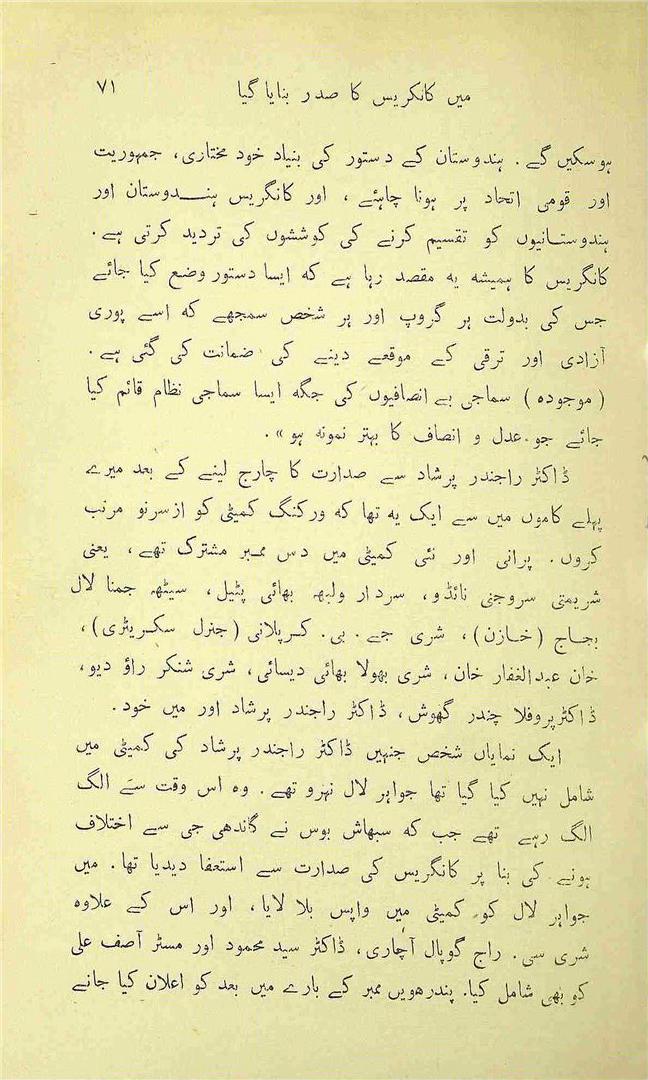 میں کانکریس کا صدر بنایا گیا ۷۱
ہوسکیں گے۔ ہندوستان کے دستور کی بنیاد خود مختاری، جمہوریت
اور قومی اتحاد پر ہونا چاہئے، اور کانگریس ہندوستان اور
ہندوستانیوں کو تقسیم کرنے کی کوششوں کی تردید کرتی ہے۔
کانگریس کا ہمیشہ یہ مقصد رہا ہے کہ ایسا دستور وضع کیا جائے
جس کی بدولت ہر گروپ اور ہر شخص سمجھے کہ اسے پوری
آزادی اور ترقی کے موقعے دینے کی ضمانت کی گئی ہے۔
(موجودہ) سماجی بے انصافیوں کی جگہ ایسا سماجی نظام قائم کیا
جائے جو عدل و انصاف کا بہتر نمونہ ہو»۔
ڈاکٹر راجندر پرشاد سے صدارت کا چارج لینے کے بعد میرے
پہلے کاموں میں سے ایک یہ تھا کہ ورکنگ کمیٹی کو ازسرنو مرتب
کروں۔ پرانی اور نئی کمیٹی میں دس ممبر مشترک تھے، یعنی
شریمتی سروجنی نائڈو، سردار ولبھ بھائی پٹیل، سیٹھ جمنا لال
بجاج (خازن)، شری جے۔ بی۔ کرپلانی (جنرل سکریٹری)،
خان عبدالغفار خان، شری بھولا بھائی دیسائی، شری شنکر راؤ دیو،
ڈاکٹرپروفلا چندر گھوش، ڈاکٹر راجندر پرشاد اور میں خود۔
ایک نمایاں شخص جنہیں ڈاکٹر راجندر پرشاد کی کمیٹی میں
شامل نہیں کیا گیا تھا جواہر لال نہرو تھے۔ وہ اس وقت سے الگ
الگ رہے تھے جب کہ سبھاش بوس نے گاندھی جی سے اختلاف
ہونے کی بنا پر کانگریس کی صدارت سے استعفا دیدیا تھا۔ میں
جواہر لال کو کمیٹی میں واپس بلا لایا، اور اس کے علاوہ
شری سی۔ راج گوپال آچاری، ڈاکٹر سید محمود اور مسٹر آصف علی
کو بھی شامل کیا۔ پندرھویں ممبر کے بارے میں بعد کو اعلان کیا جانے